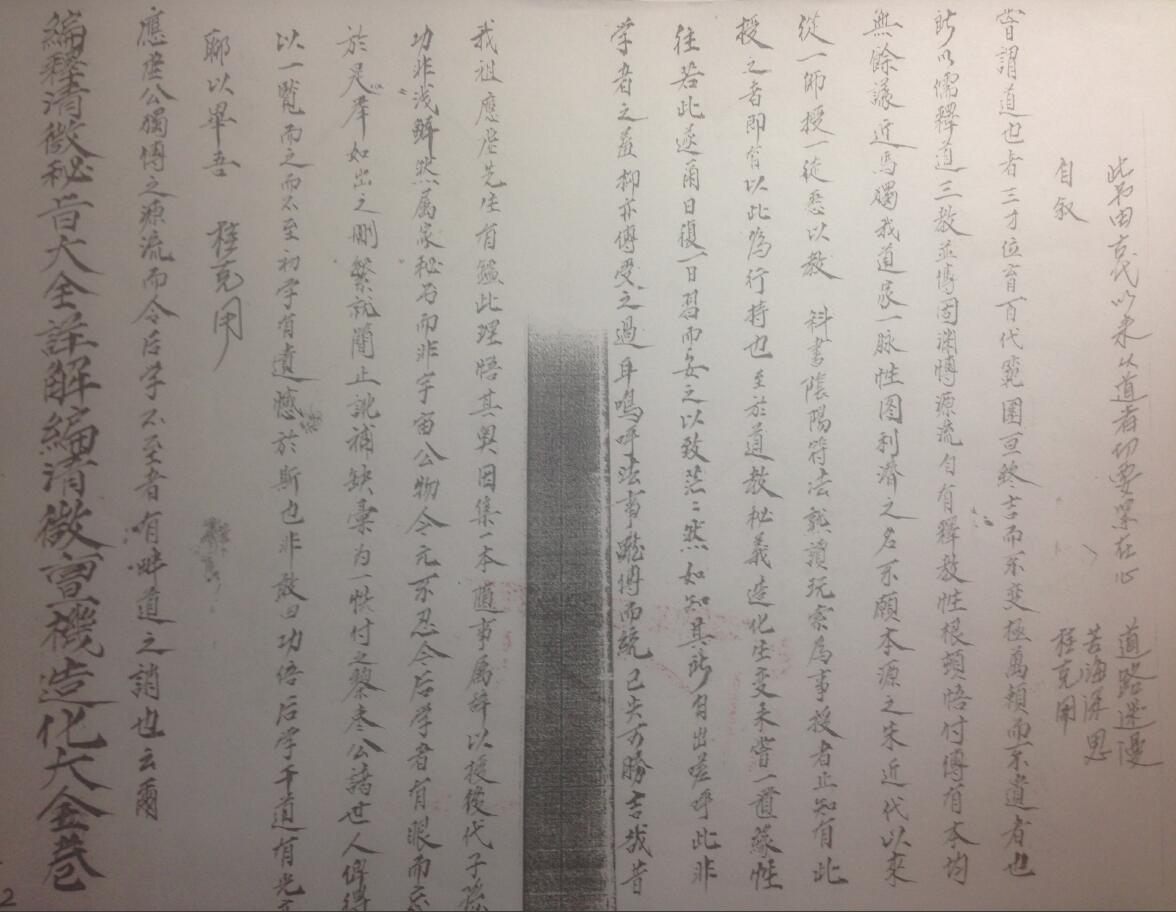 此書由古代以來以道者切要緊在心
道路還漫
苦海深思
程克用
自叙
嘗謂道也者三才位育百代範圍亘終古而不變極萬類而不遺者也
所以儒釋道三教並傳固渊愽源流自有釋教性根頓悟付傳有本均
無餘議近焉獨我道家一脉性图利濟之名不顧本源之朱近代以來
從一師授一徒悉以教 科書陰陽符法熟讀玩索為事授者止知有此
授之者即自以此為行持也至於道教秘義造化生变未嘗一置蘇性
往若此遂爾日復一日習而安之以致茫々然如知其所自出嗟呼此非
学者之羞抑亦傅受之過耳嗚呼法事雖傳而統已失可勝言哉昔
我祖應座先生有鑑此理悟其奥因集一本隨事属辞以授後代子孫
功非浅鮮然属家秘而非宇宙公物今元不忍令后学者有眼而忘
於是群如出之刪繁就簡止訛補缺彙为一帙付之黎枣公諸世人俾得
以一覧而之而不至初学有遺憾於斯也非敢曰功倍后学于道有光
聊以畢吾 程克用
應座公獨傳之源流而令后学不至者有畔道之誚也云爾
編釋清微秘旨大全詳解編清微宣機造化大全卷
2